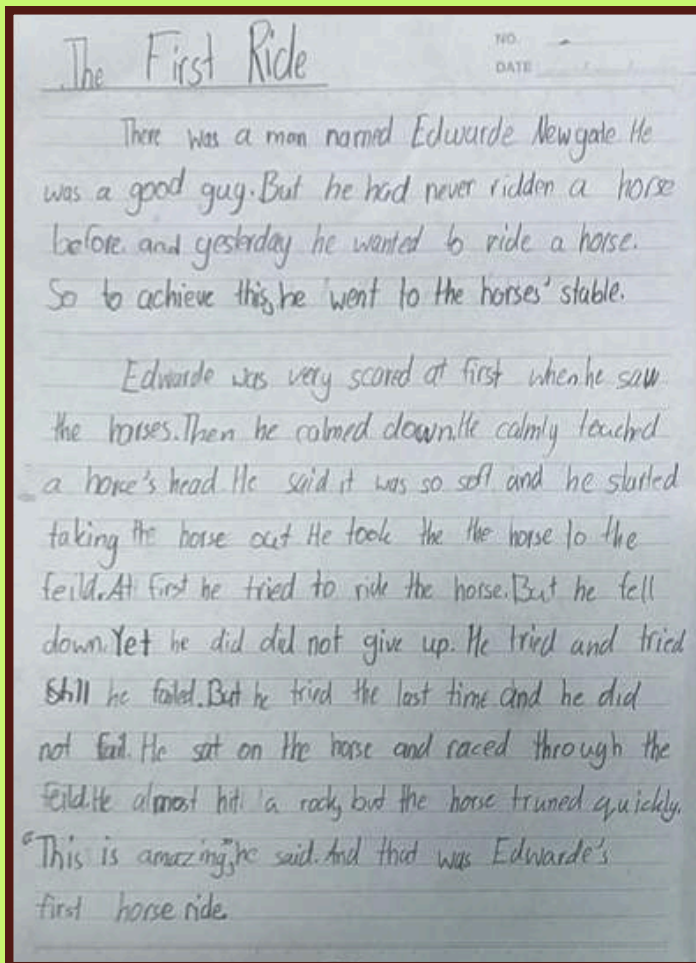 The First Ride
NO.
DATE
There was a man named Edwarde Newgate He
was a good guy. But he had never ridden a horse
before. and yesterday he wanted to ride a horse.
So to achieve this, he went to the horses' stable.
Edwarde was very scared at first when he saw
the horses. Then he calmed down. He calmly touched
a horse's head. He said it was so soft and he started
taking the horse out He took the the horse to the
feild. At first he tried to ride the horse. But he fell
down. Yet he did did not give up. He tried and tried
still he failed. But he tried the last time and he did
not fail. He sat on the horse and raced through the
feild. He almost hit a rock, but the horse truned quickly.
"This is amazing", he said. And that was Edwarde's
first horse ride.